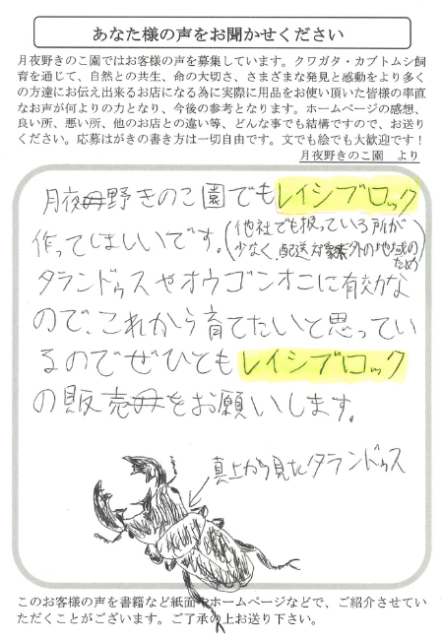 あなた様の声をお聞かせください
月夜野きのこ園ではお客様の声を募集しています。クワガタ・カブトムシ飼
育を通じて、自然との共生、命の大切さ、さまざまな発見と感動をより多く
の方達にお伝え出来るお店になる為に実際に用品をお使い頂いた皆様の率直
なお声が何よりの力となり、今後の参考となります。ホームページの感想、
良い所、悪い所、他のお店との違い等、どんな事でも結構ですので、お送り
ください。応募はがきの書き方は一切自由です。文でも絵でも大歓迎です！
月夜野きのこ園　より
月夜野きのこ園でもレイシブロック
作ってほしいです。(他社でも扱っている所が
少なく、配送対象外の地域の
ため
タランドゥスやオウゴンオニに有効な
ので、これから育てたいと思ってい
るのでぜひともレイシブロック
の販売をお願いします。
真上から見たタランドゥス
このお客様の声を書籍など紙面やホームページなどで、ご紹介させてい
ただくことがございます。ご了承の上お送り下さい。